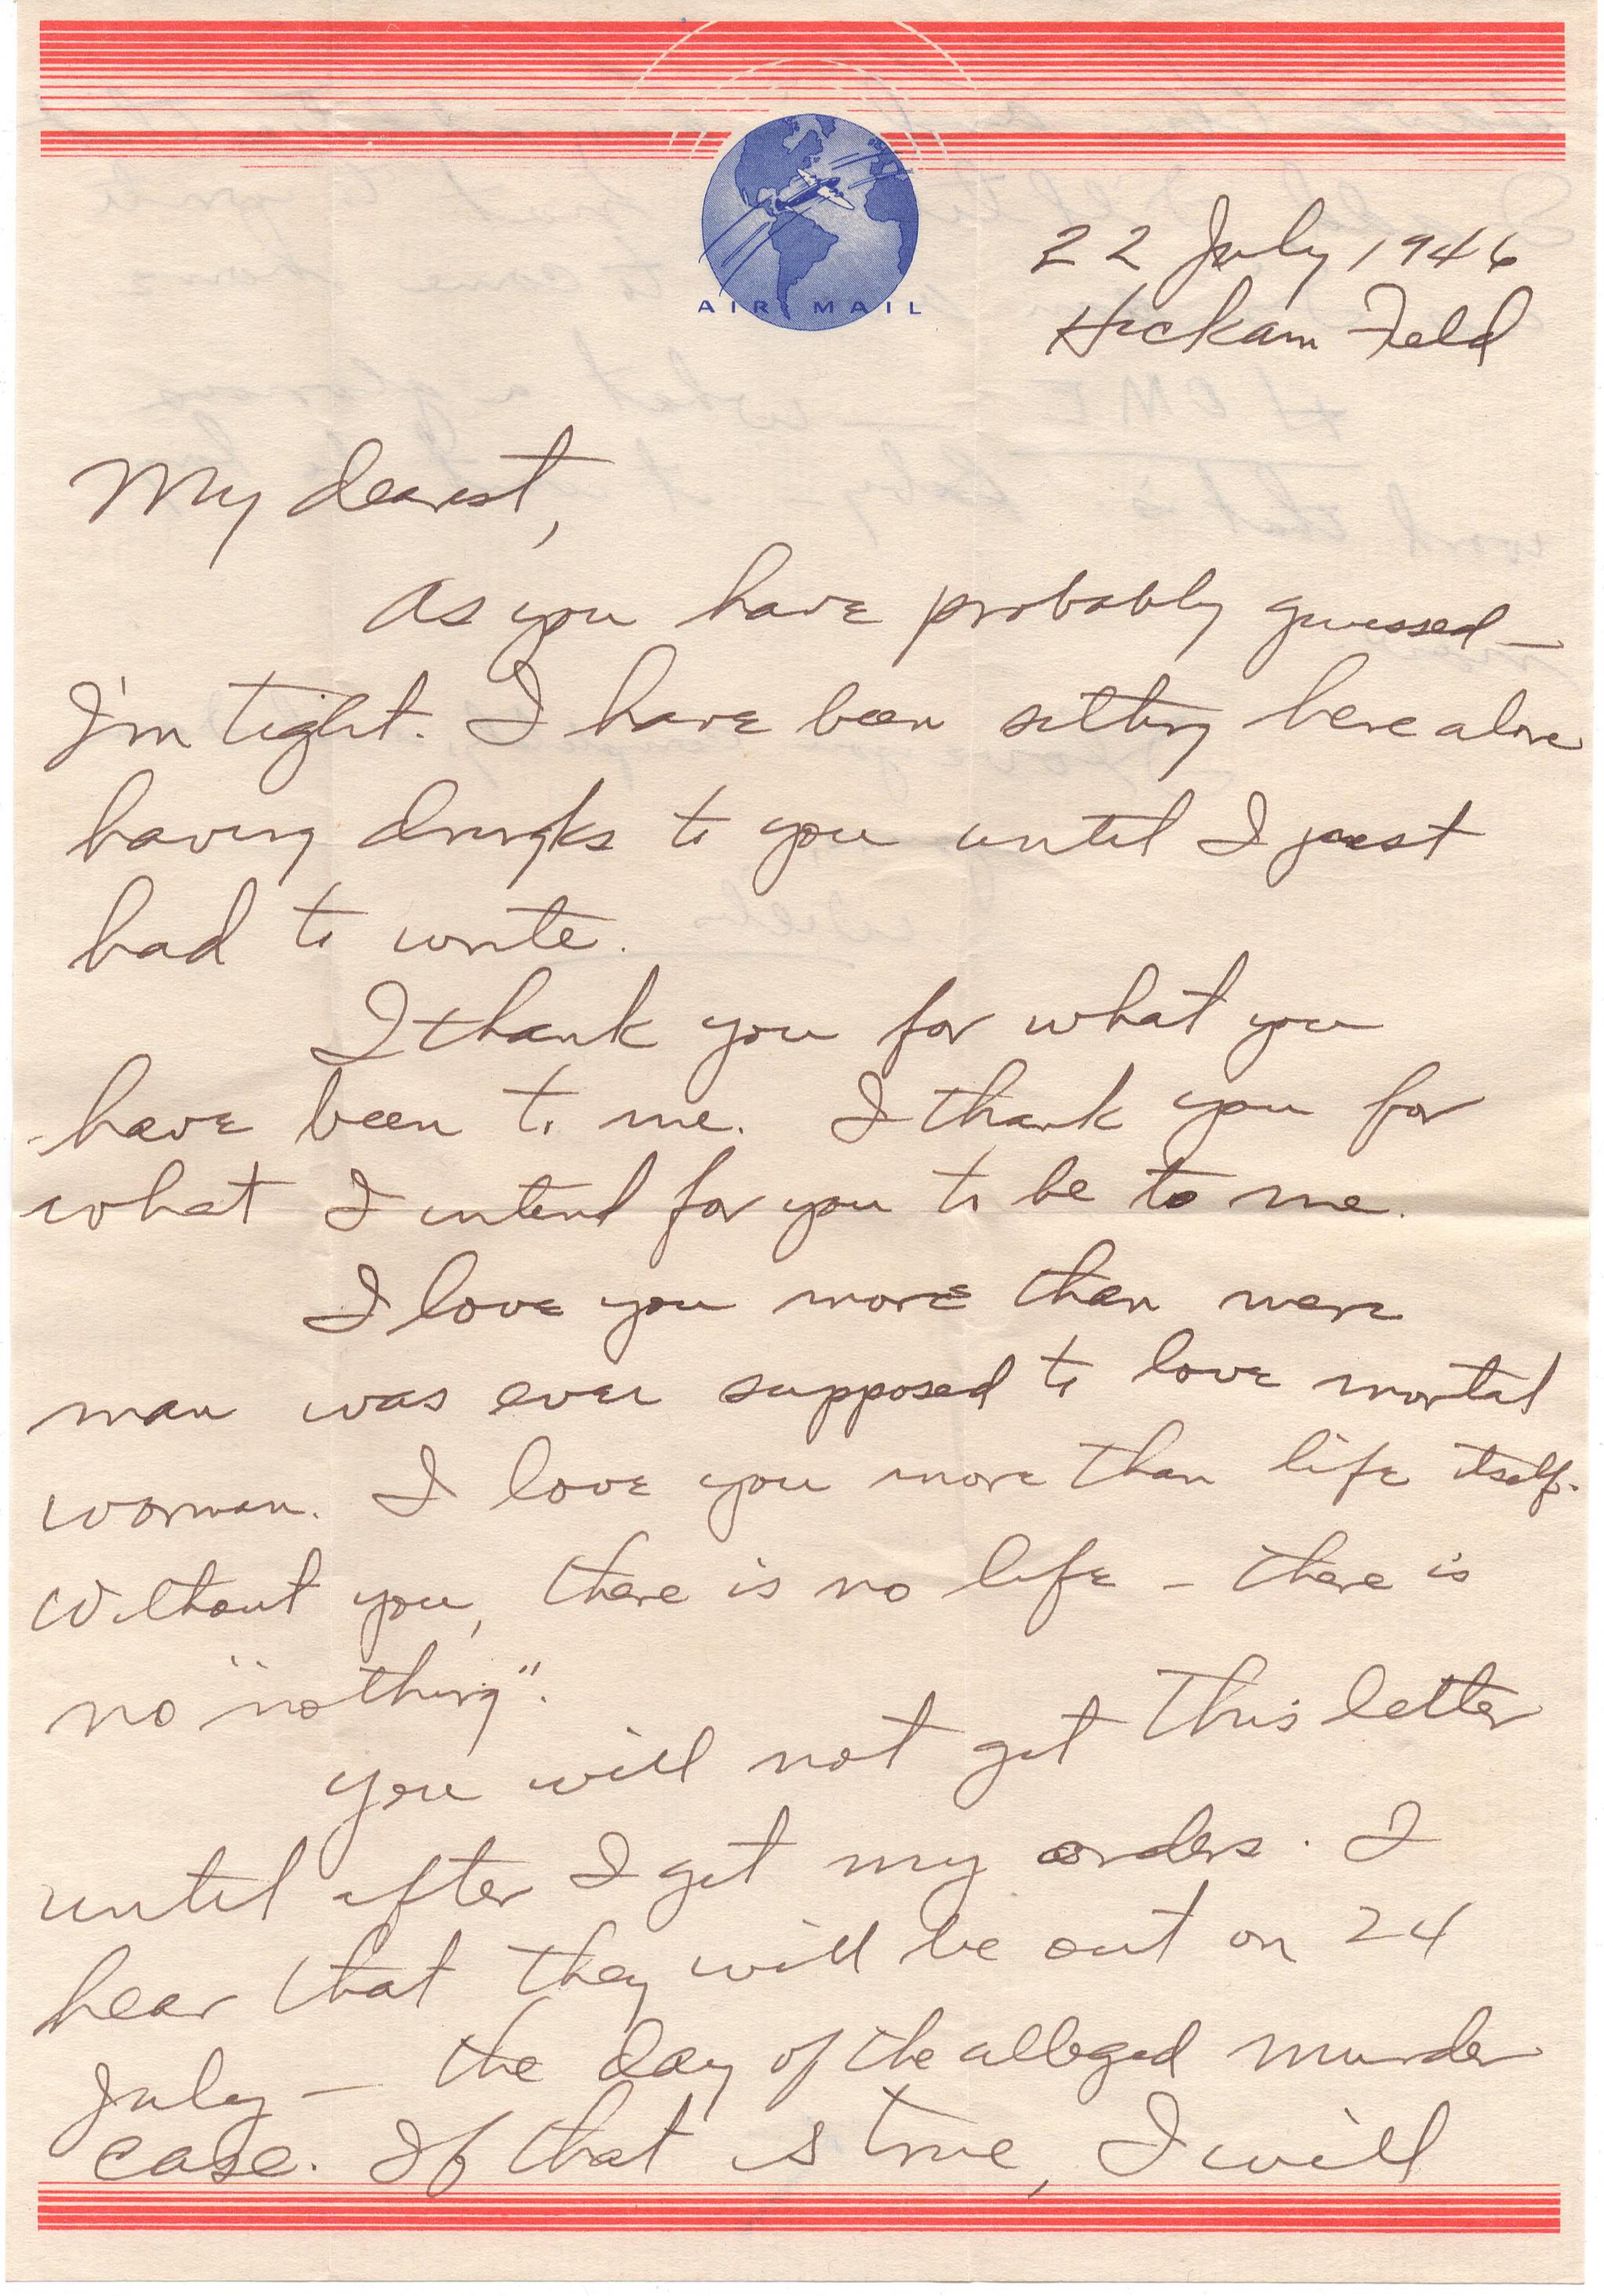 AIR MAIL
22 July 1946
Hickam Field
My dearest,
As you have probably guessed —
I'm tight. I have been sitting here alone
having drinks to you until I just
had to write.
I thank you for what you
have been to me. I thank you for
what I intend for you to be to me.
I love you more than mere
man was ever supposed to love mortal
woman. I love you more than life itself.
Without you, there is no life – there is
no "nothing".
You will not get this letter
until after I get my orders. I
hear that they will be out on 24
July — the day of the alleged murder
case. If that is true, I will